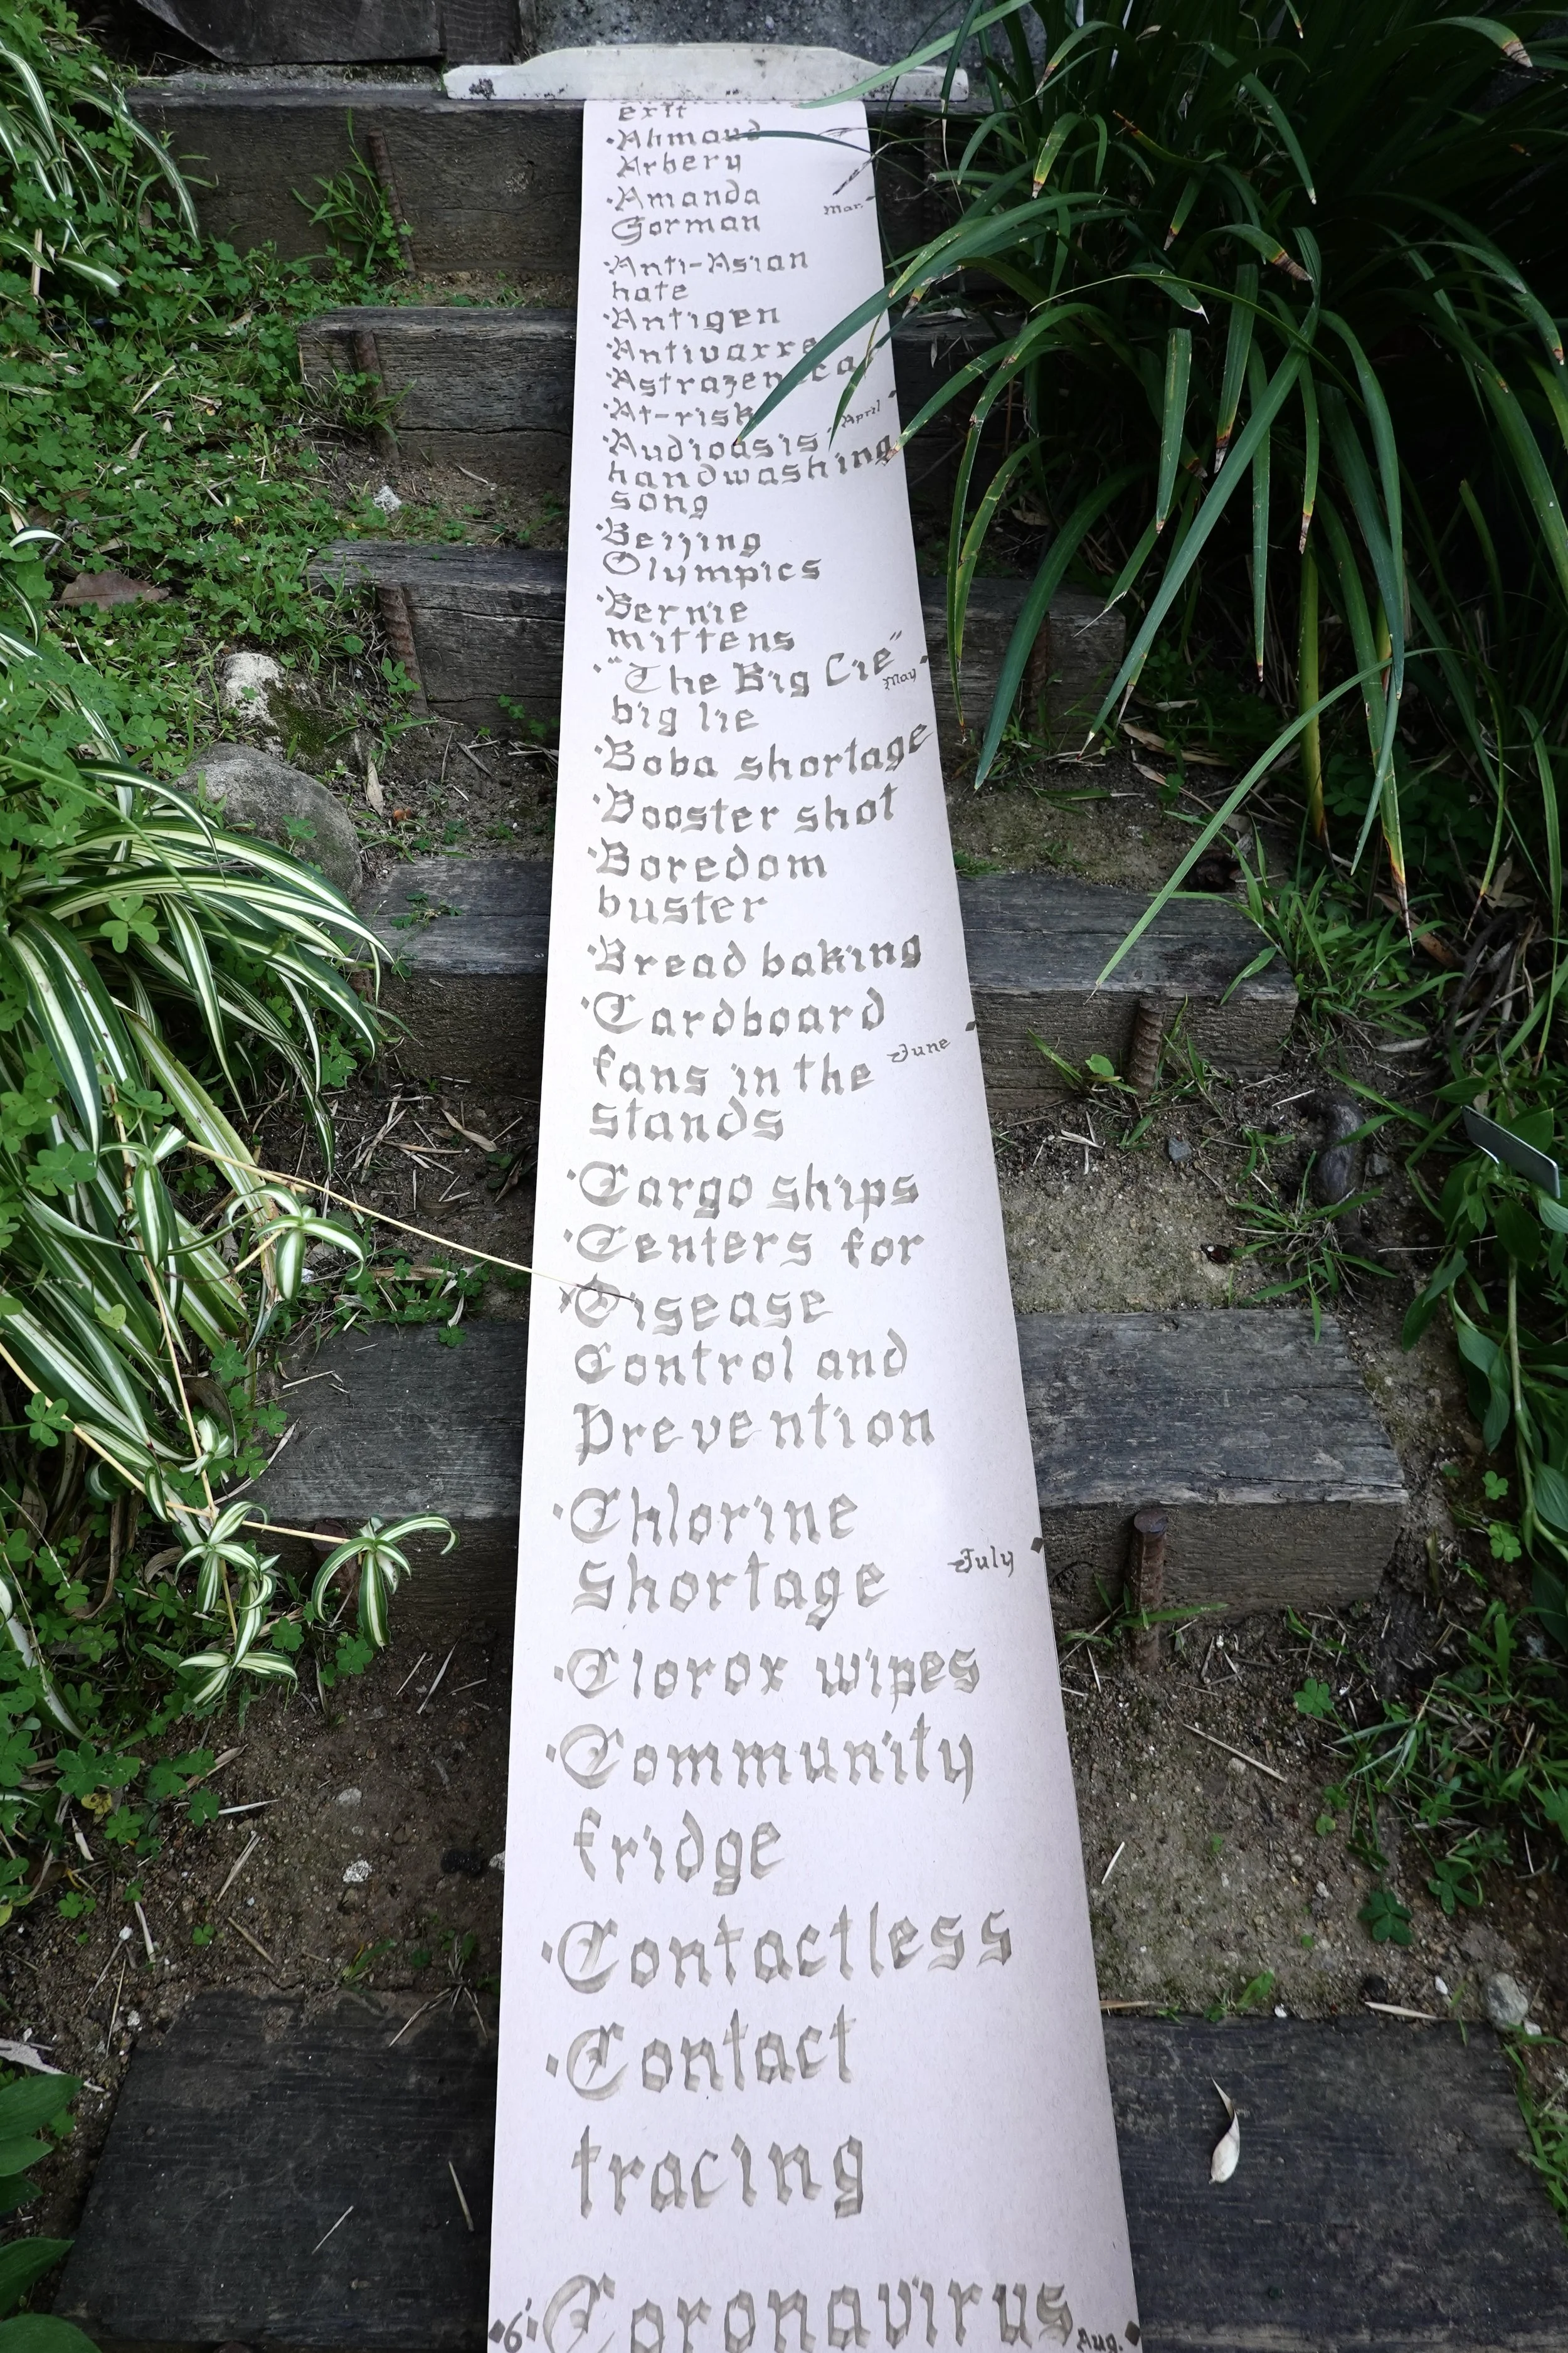 exit
·Ahmaud
Arbery
·Amanda
Mar.
Gorman
·Anti-Asian
hate
·Antigen
·Astrazenecar
·At-risk
April
·Audioasis
handwashing
song
·Beijing
Olympics
·Bernie
mittens
·"The Big Lie"
May
big lie
·Boba shortage
·Booster shot
·Boredom
buster
·Bread baking
·Cardboard
June
fans in the
stands
·Cargo ships
·Centers for
Disease
Control and
Prevention
·Chlorine
July
Shortage
·Clorox wipes
·Community
fridge
·Contactless
·Contact
tracing
6'
·Coronavirus
Aug.